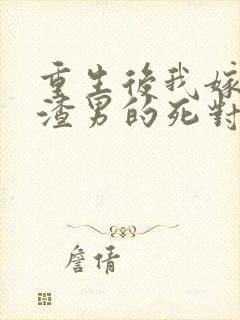 重生後我嫁
渣男的死對
詹倩